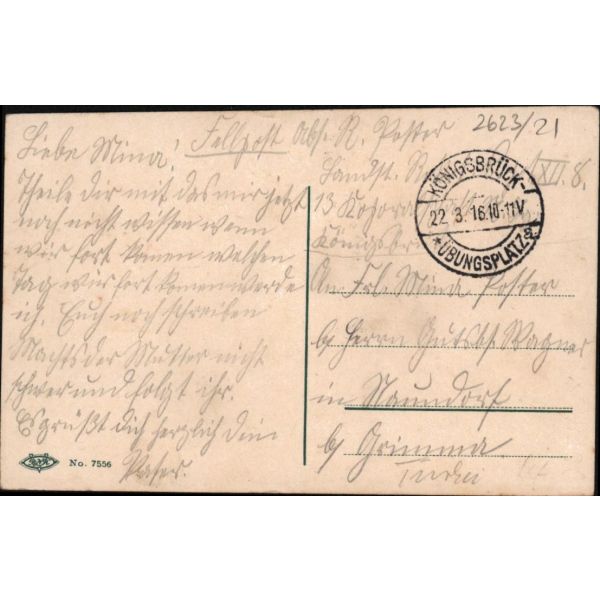 2623/21
Feldpost Abs. R. Poster
Liebe Mina!
Landst. XII. 8.
Theile dir mit das wir jetzt
13 Koporal
noch nicht wissen wenn
Königsbrück
wir fort komen welchen
Tag wir fort komen werde
ich. Euch noch schreiben
Machts der Mutter nicht
schwer und folgt ihr.
Es grüßt dich herzlich dein
Vater.
KÖNIGSBRÜCK
22.3.16.10-11V
* ÜBUNGSPLATZ a
An Frl. Mina Poster
b/ Herrn Gutsbs. Wagner
in Naundorf
b/ Grimma
No. 7556